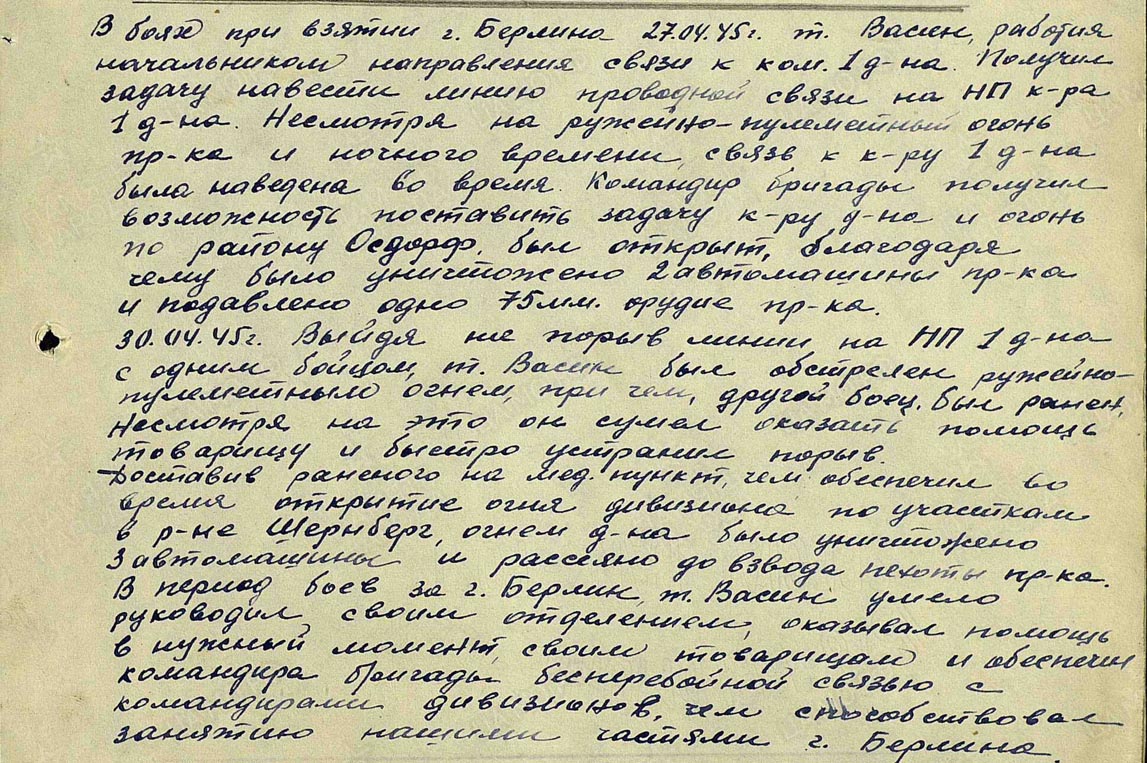 В боях при взятии г. Берлина 27.04.45г. т. Васин, работая
начальником направления связи к ком. 1 д-на. Получил
задачу навести линию проводной связи на НП к-ра
1 д-на. Несмотря на ружейно-пулеметный огонь
пр-ка и ночного времени, связь к к-ру 1 д-на
была наведена во время. Командир бригады получил
возможность поставить задачу к-ру д-на и огонь
по району Осдорф. был открыт, благодаря
чему было уничтожено 2 автомашины пр-ка
и подавлено одно 75мм. орудие пр-ка.
30.04.45г. Выйдя на порыв линии на НП 1 д-на
с одним бойцом, т. Васин был обстрелен ружейно-
пулеметным огнем, при чем, другой боец. был ранен,
Несмотря на это он сумел оказать помощь
товарищу и быстро устранил порыв.
Доставив раненого на мед. пункт, чем обеспечил во
время открытие огня дивизиона по участкам
в р-не Шернберг, огнем д-на было уничтожено
3 автомашины и рассеяно до взвода пехоты пр-ка.
В период боев за г. Берлин, т. Васин умело
руководил своим отделением, оказывал помощь
в нужный момент, своим товарищам и обеспечил
командира бригады бесперебойной связью с
командирами дивизионов, чем способствовал
занятию нашими частями г. Берлина.